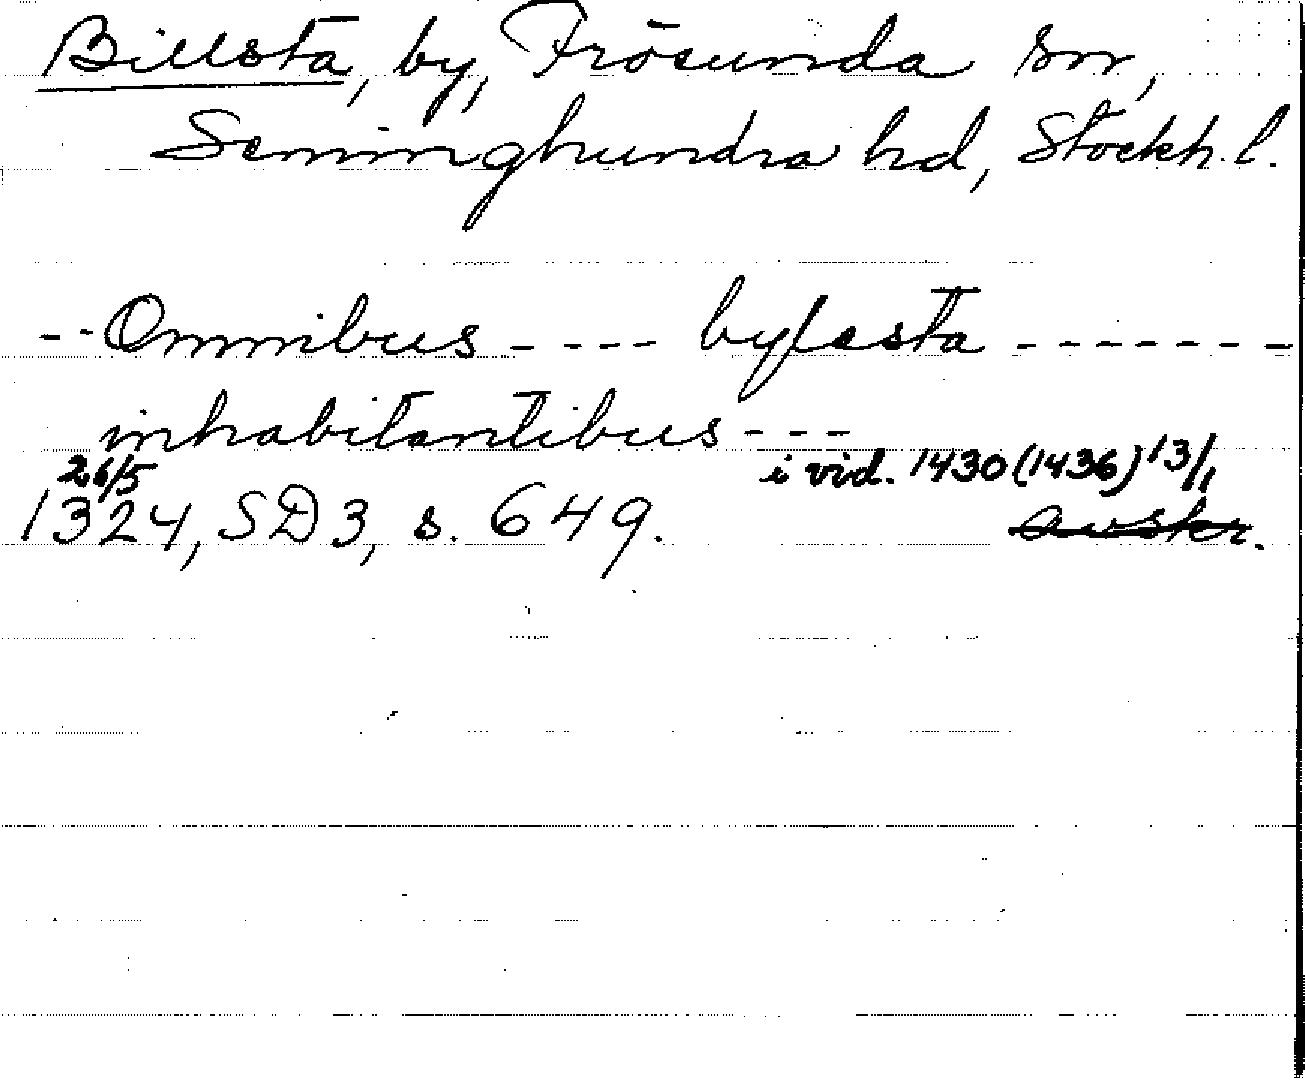 Billsta, by, Frösunda sn,
Seminghundra hd, Stockh. l.
-- Omnibus ---- bylista -------
inhabitantibus ---
26/5 i vid. 1430 (1436) 13/1
1324, SD 3, s. 649. avskr.